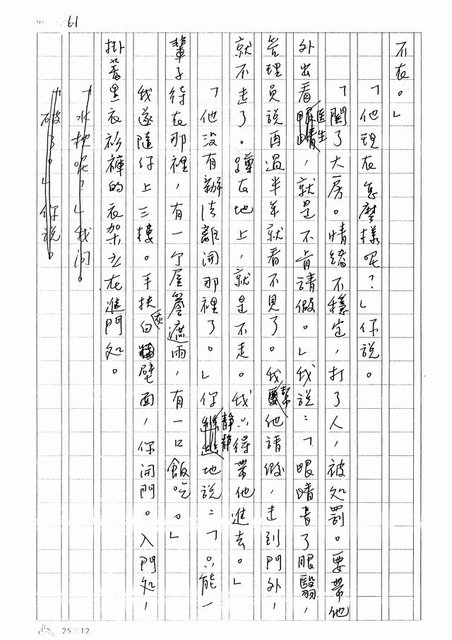 61
不在。」
「他現在怎麼樣呢？」你說。
「關了大房。情緒不穩定，打了人，被処罰。要帶他
外出看醫生，就是不肯請假。」我說：「眼睛長了眼翳，
管理員說再過半年就看不見了。我幫他請假，走到門外，
就不走了。蹲在地上，就是不走。我只得帶他進去。」
「他沒有辦法離開那裡了。」你靜靜地說：「只能一
輩子待在那裡，有一个屋簷遮雨，有一口飯吃。」
我遂隨你上三樓。手扶白瓷壁面，你開門。入門処，
掛著黑衣衫褲的衣架立在進門処。
「水呢？」我問。
「破了。」你說。
25×12